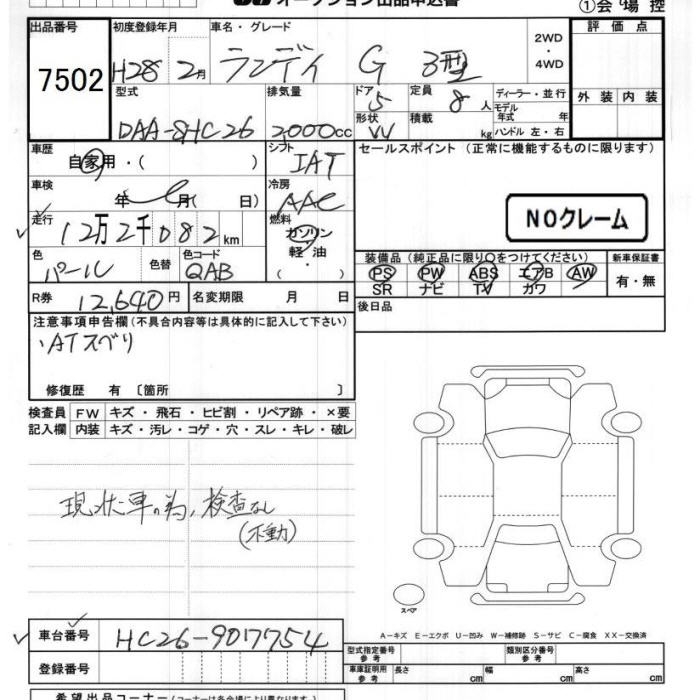 オークション出品申込書
①会場控
出品番号 初度登録年月 車名・グレード 評価点
7502 H28 2月 ランディ G 3型 2WD・4WD
型式 排気量 ドア 定員 ディーラー・並行 外装 内装
DAA-SHC26 2000cc 5 8人 モデル年式 年
形状 積載
W kg ハンドル 左・右
車歴 シフト セールスポイント (正常に機能するものに限ります)
自家用・( ) IAT
車検 冷房
年 月( 日) AAC
走行 燃料 NOクレーム
12万2千082km ガソリン
軽油
( )
色 色替 色コード 装備品(純正品に限り○をつけてください) 新車保証書
パール QAB PS PW ABS エアB AW 有・無
SR ナビ TV カワ
R券 12,640円 名変期限 月 日 後日品
注意事項申告欄(不具合内容等は具体的に記入して下さい)
・ATスベリ
修復歴 有 〔箇所 〕
検査員 FW キズ・飛石・ヒビ割・リペア跡・×要
記入欄 内装 キズ・汚レ・コゲ・穴・スレ・キレ・破レ
現状車の為、検査なし
(不動)
スペア
A−キズ E−エクボ U−凹み W−補修跡 S−サビ C−腐食 XX−交換済
車台番号 HC26-907754 型式指定番号 参考 類別区分番号 参考
登録番号 車庫証明用 参考 長さ cm 幅 cm 高さ cm
希望出品コーナー(コーナーは各会場により異なります。)